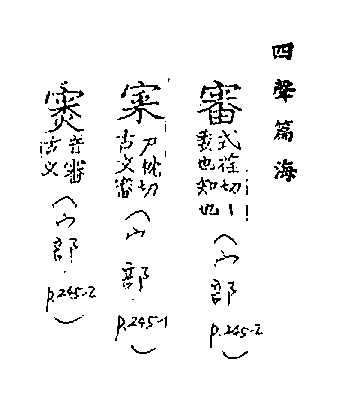 四聲篇海
審
式荏切｜
義也知也
（宀部
p.245-2
）
宷
尸枕切
古文審
（宀部
p.245-1
）
音審
古文
（宀部
p.245-2
）